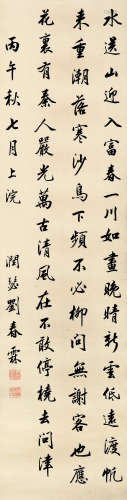 水送山迎入富春一川如畫晚晴新雲低遠渡帆
來重潮落寒沙鳥下頻不必柳間無謝客也應
花裏有秦人嚴光萬古清風在不敢停橈去問津
丙午秋七月上浣 潤琴劉春霖